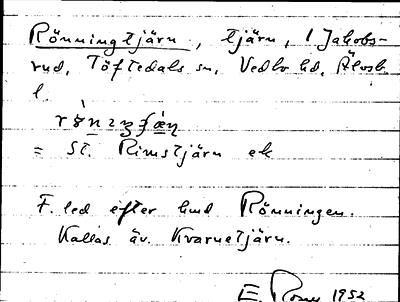 Rönningtjärn, tjärn, i Jakobs-
rud, Töftedals sn, Vedbo hd, Älvsb.
l.
= St. Rimstjärn ek
F. led efter hmd Rönningen.
Kallas äv. Kvarnetjärn.
E. 1952